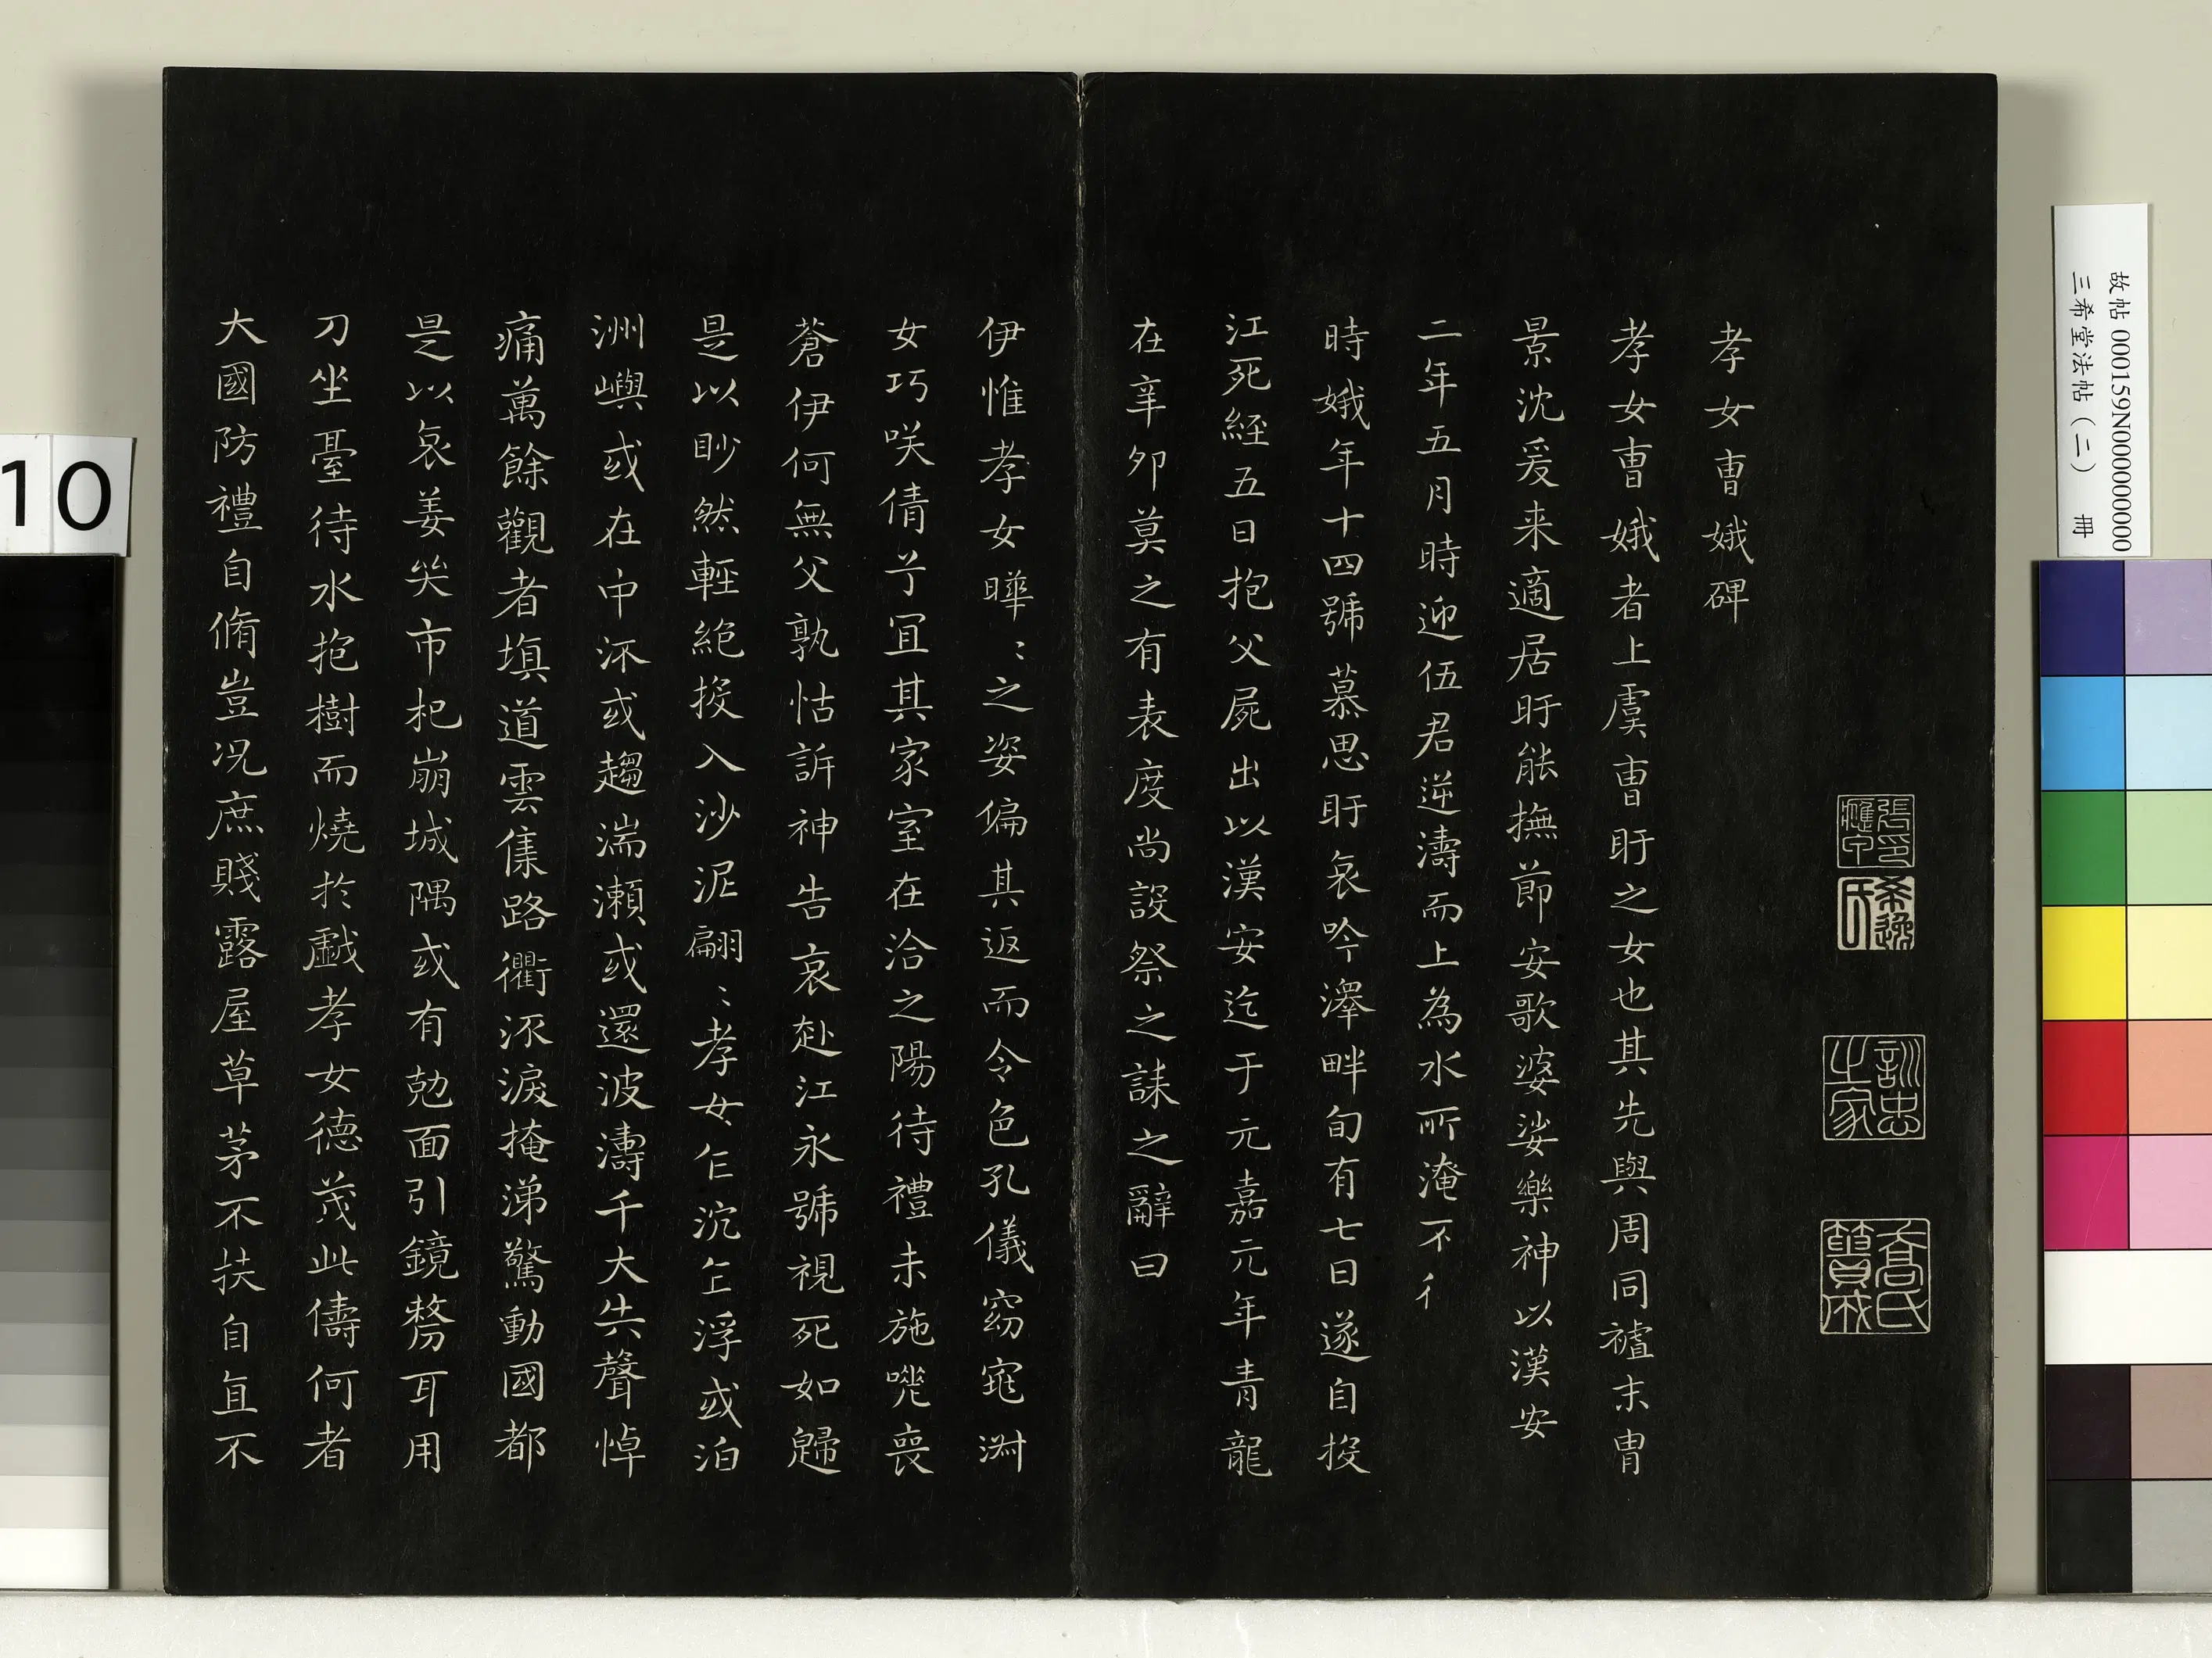 孝女曺娥碑
孝女曺娥者上虞曺盱之女也其先與周同禇末胄
景沈爰来適居盱能撫節安歌婆娑樂神以漢安
二年五月時迎伍君逆濤而上為水所淹不
時娥年十四號慕思盱哀吟澤畔旬有七日遂自投
江死經五日抱父屍出以漢安迄于元嘉元年青龍
在辛卯莫之有表度尚設祭之誄之辭曰
伊惟孝女曄〻之姿偏其返而令色孔儀窈窕淑
女巧咲倩兮宜其家室在洽之陽待禮未施嗟喪
蒼伊何無父孰怙訴神告哀赴江永號視死如歸
是以眇然輕絕投入沙泥翩〻孝女乍沉乍浮或泊
洲嶼或在中沠或趨湍瀨或還波濤千夫失聲悼
痛萬餘觀者填道雲集路衢沠淚掩涕驚動國都
是以哀姜哭市杞崩城隅或有尅面引鏡剺耳用
刀坐臺待水抱樹而燒於戲孝女德茂此儔何者
大國防禮自脩豈况庶賤露屋草茅不扶自直不
張
希逸
氏
訓忠
之家
喬氏
簣成
10
故帖000159N000000000
三希堂法帖(二) 冊